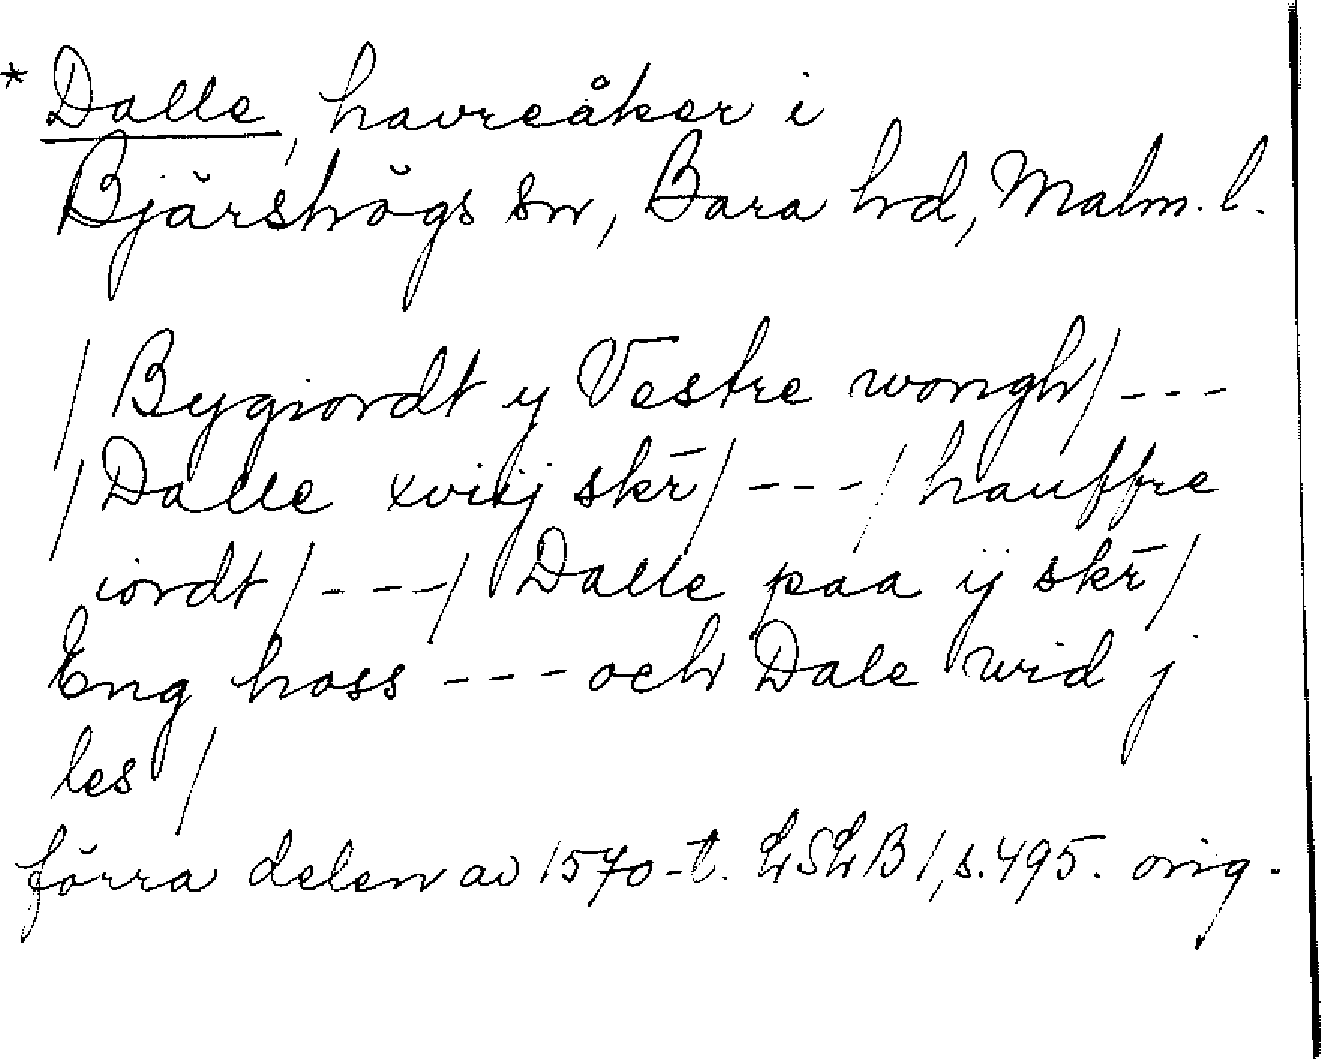 * Dalle, havreåker i
Bjärshögs sn, Bara hd, Malm. l.
/ Bygiordt y Vestre wongh / ---
/ Dalle xviij skr̄ / --- / hauffre
iordt / --- / Dalle paa ij skr̄ /
Eng hoss --- och Dale wid j
les /
förra delen av 1570-t. LSLB 1, s. 495. orig.